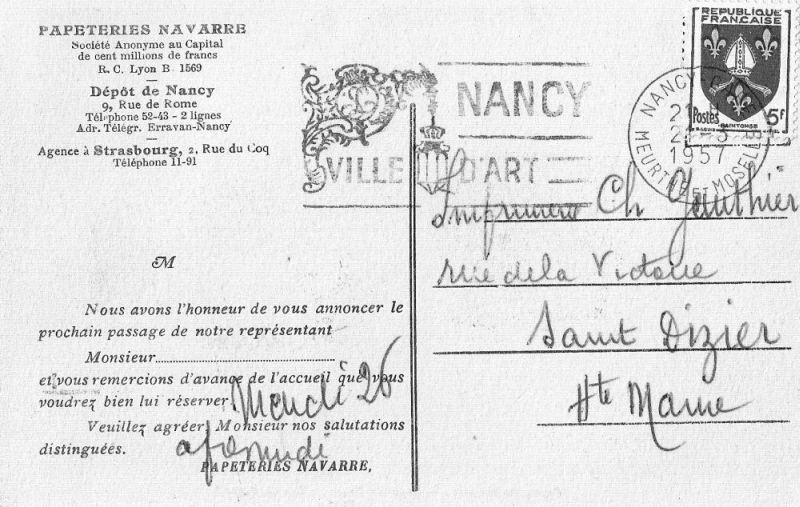 PAPETERIES NAVARRE
Société Anonyme au Capital
de cent millions de francs
R. C. Lyon B 1569
Dépôt de Nancy
9, Rue de Rome
Téléphone 52-43 - 2 lignes
Adr. Télégr. Erravan-Nancy
Agence à Strasbourg, 2, Rue du Coq
Téléphone 11-91
M
Nous avons l'honneur de vous annoncer le
prochain passage de notre représentant
Monsieur
et vous remercions d'avance de l'accueil que vous
voudrez bien lui réserver.
Mardi 26
Veuillez agréer Monsieur nos salutations
distinguées.
PAPETERIES NAVARRE,
NANCY
VILLE D'ART
NANCY
1957
MEURTHE ET MOSELLE
REPUBLIQUE
FRANÇAISE
Postes 5F
SAINTONGE
Imprimerie Ch Gauthier
rue de la Victoire
Saint Dizier
Hte Marne